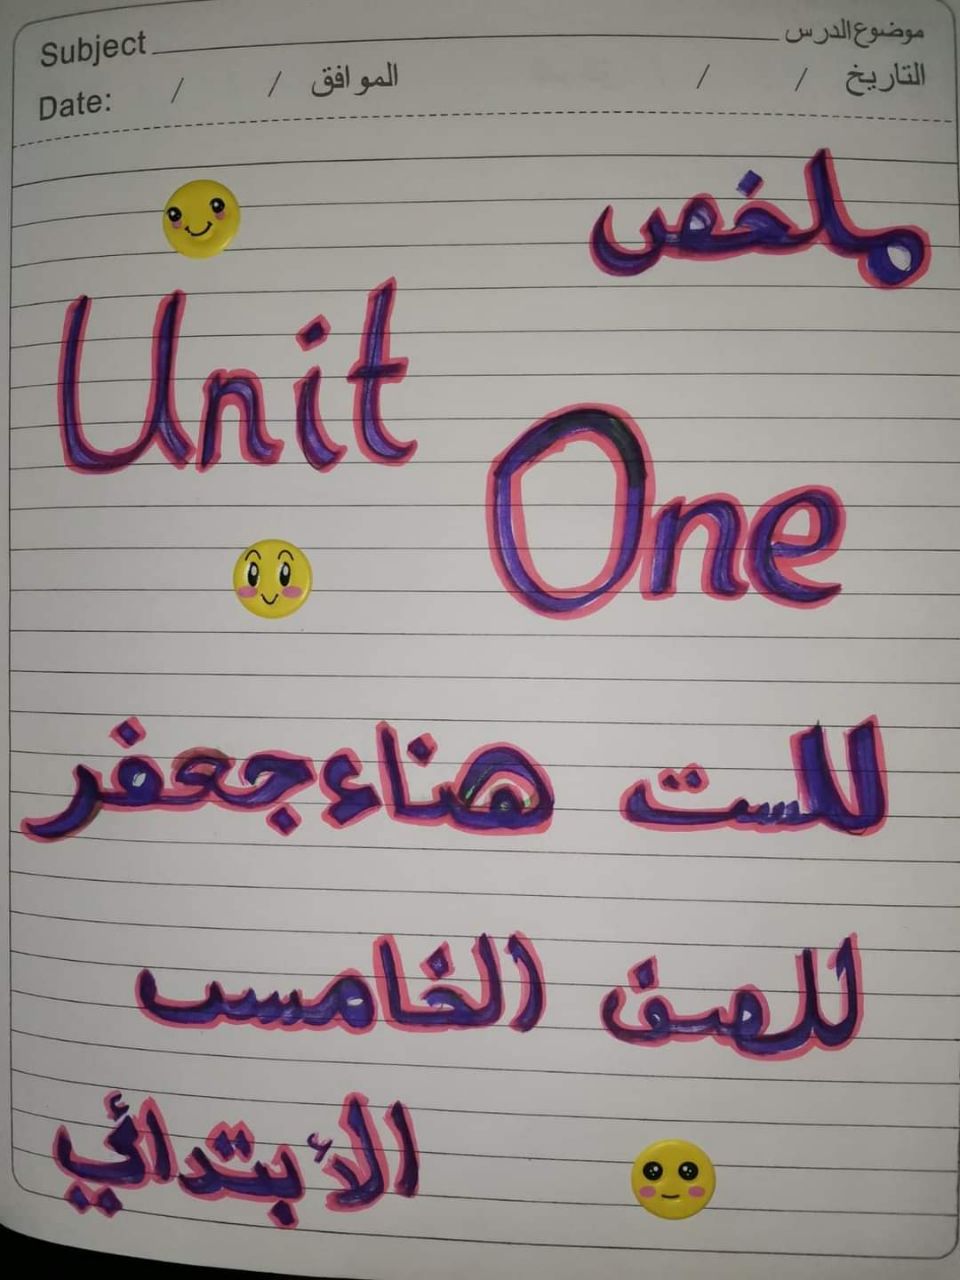 Subject موضوع الدرس
Date: / / الموافق / / التاريخ
ملخص
Unit
One
للست هناء جعفر
للصف الخامس
الأبتدائي